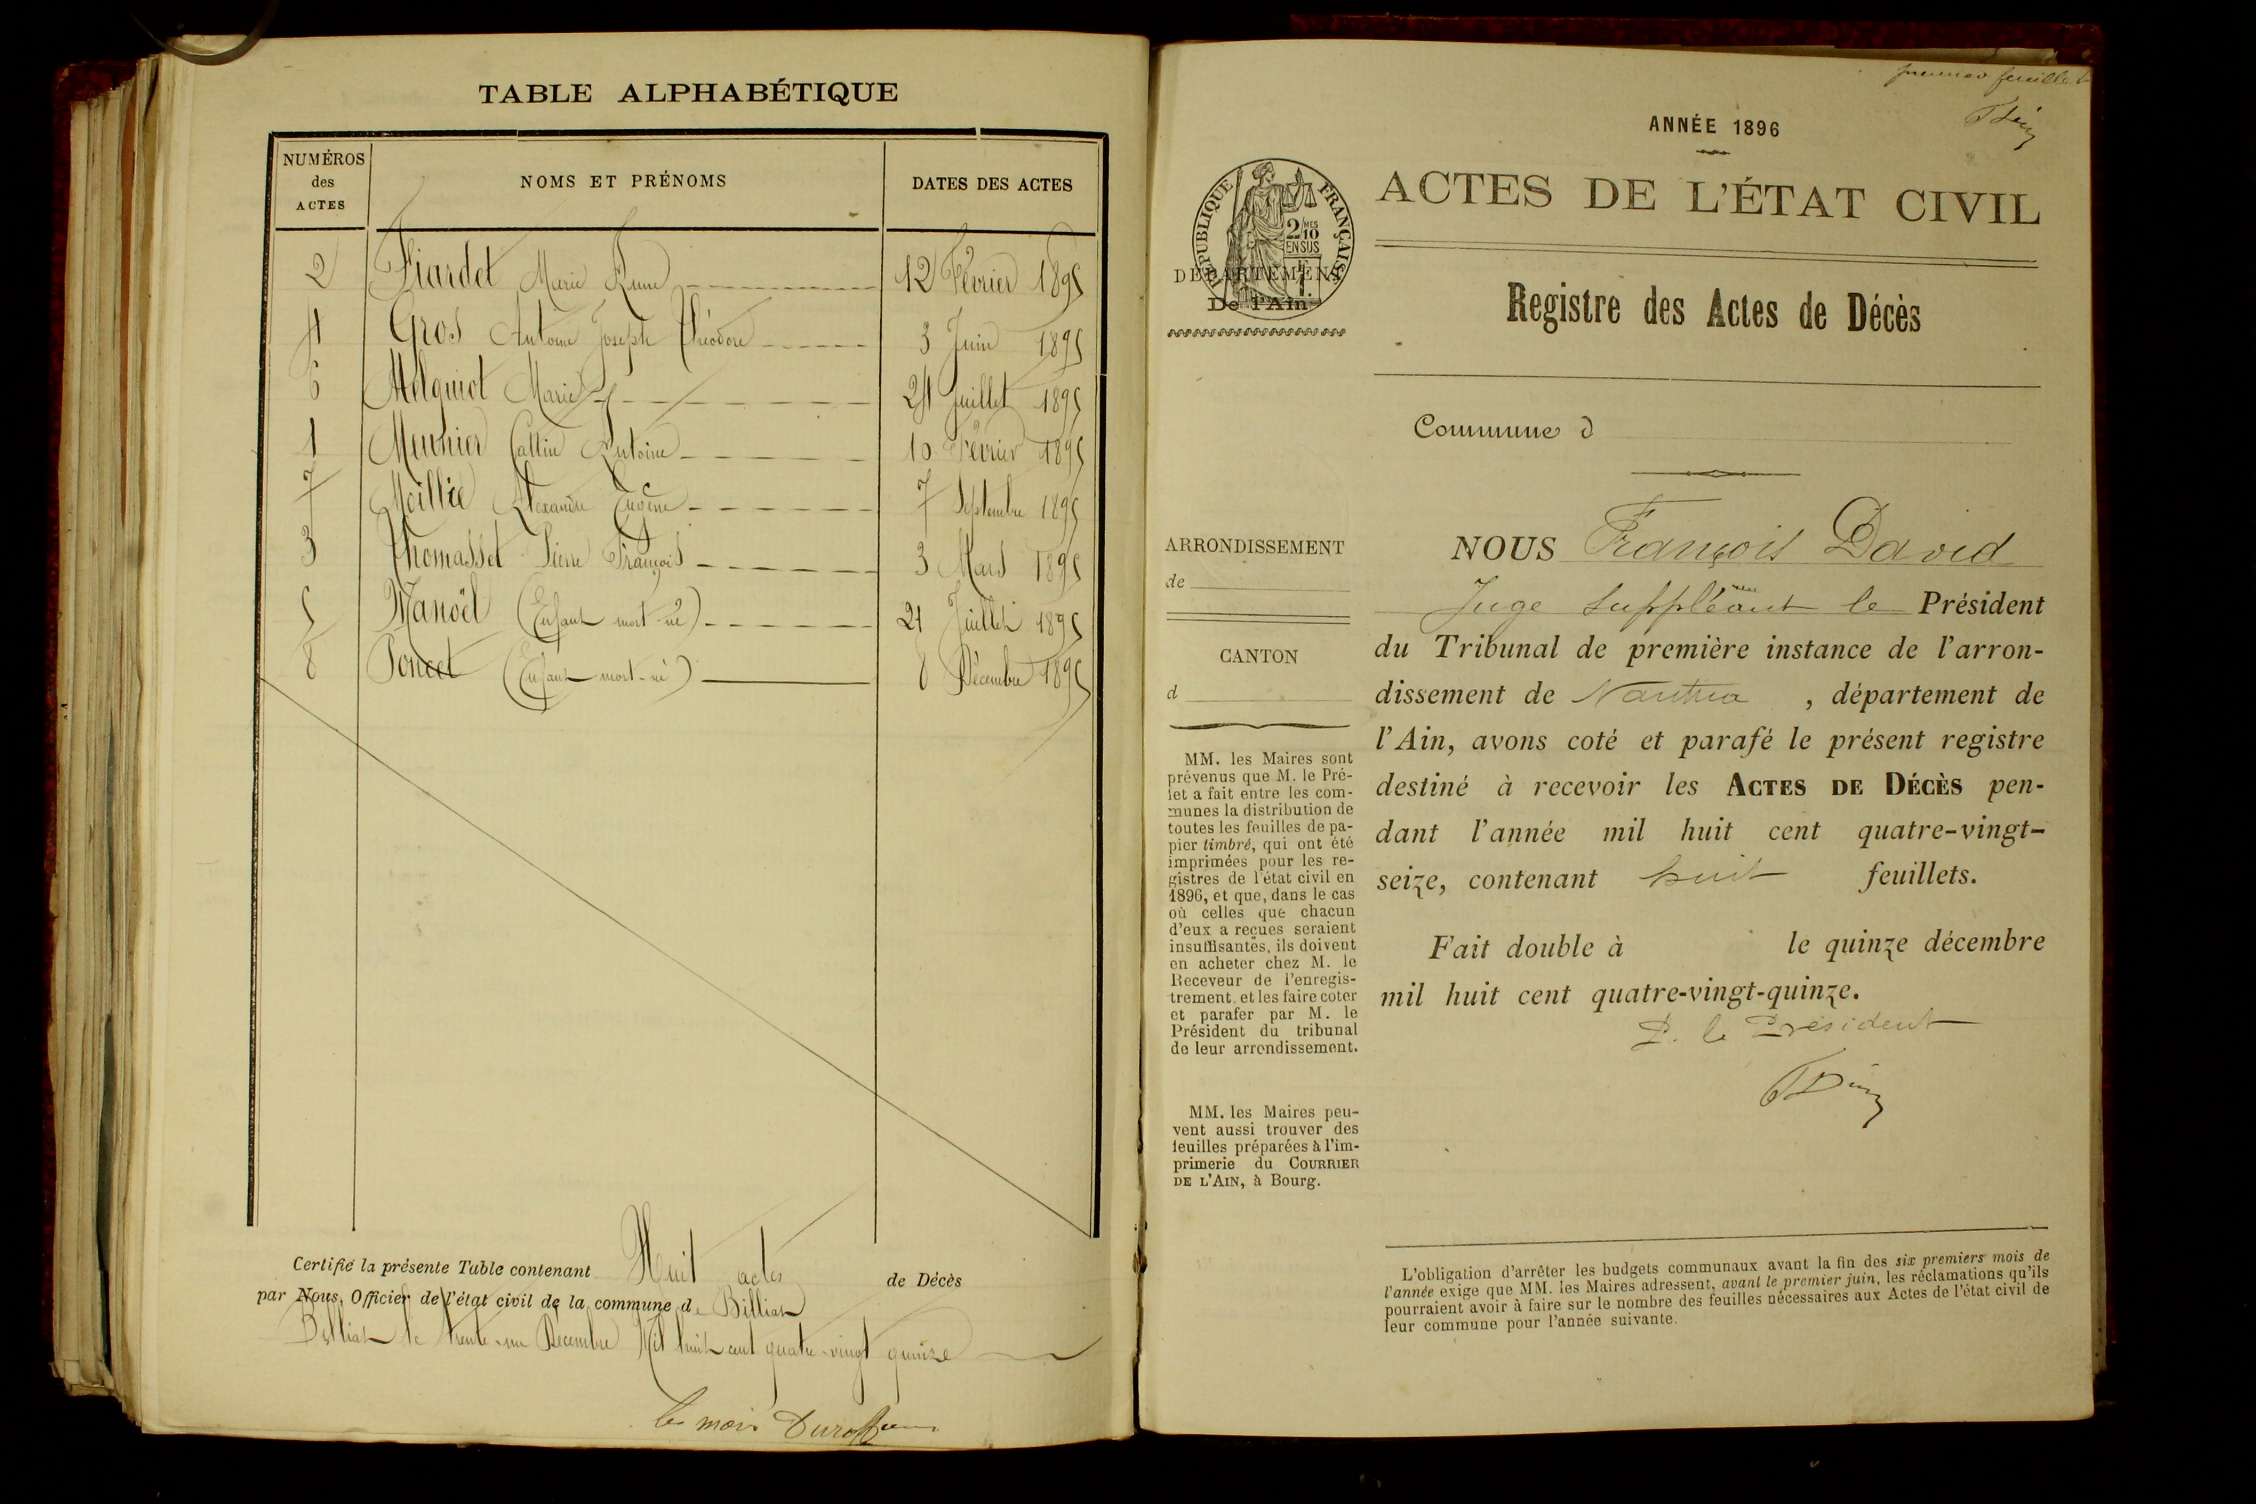 TABLE ALPHABÉTIQUE
NUMÉROS des ACTES
NOMS ET PRÉNOMS
DATES DES ACTES
2 Fiardet Marie 12 Février 1895
4 Gros Antoine Joseph Théodore 3 Juin 1895
6 Melquiot Marie 24 Juillet 1895
1 Meunier Antoine 10 Février 1895
7 Alexandre Eugène 7 Septembre 1895
3 Thomasset Pierre François 3 Mars 1895
5 Manoël (Enfant mort-né) 21 Juillet 1895
8 Poncet (Enfant mort-né) 8 Décembre 1895
Certifié la présente Table contenant Huit actes de Décès
par Nous, Officier de l'état civil de la commune de Billiat
Billiat le trente-un Décembre Mil huit cent quatre-vingt quinze
le maire
premier feuillet
ANNÉE 1896
ACTES DE L'ÉTAT CIVIL
RÉPUBLIQUE FRANÇAISE
2/10MES
EN SUS
DÉPARTEMENT
De l'Ain
Registre des Actes de Décès
Commune d
ARRONDISSEMENT
de
CANTON
d
MM. les Maires sont
prévenus que M. le Pré-
fet a fait entre les com-
munes la distribution de
toutes les feuilles de pa-
pier timbré, qui ont été
imprimées pour les re-
gistres de l'état civil en
1896, et que, dans le cas
où celles que chacun
d'eux a reçues seraient
insuffisantes, ils doivent
en acheter chez M. le
Receveur de l'enregis-
trement, et les faire coter
et parafer par M. le
Président du tribunal
de leur arrondissement.
MM. les Maires peu-
vent aussi trouver des
feuilles préparées à l'im-
primerie du COURRIER
DE L'AIN, à Bourg.
NOUS François David
Juge suppléant le Président
du Tribunal de première instance de l'arron-
dissement de Nantua, département de
l'Ain, avons coté et parafé le présent registre
destiné à recevoir les ACTES DE DÉCÈS pen-
dant l'année mil huit cent quatre-vingt-
seize, contenant huit feuillets.
Fait double à le quinze décembre
mil huit cent quatre-vingt-quinze.
P. le Président
L'obligation d'arrêter les budgets communaux avant la fin des six premiers mois de
l'année exige que MM. les Maires adressent, avant le premier juin, les réclamations qu'ils
pourraient avoir à faire sur le nombre des feuilles nécessaires aux Actes de l'état civil de
leur commune pour l'année suivante.